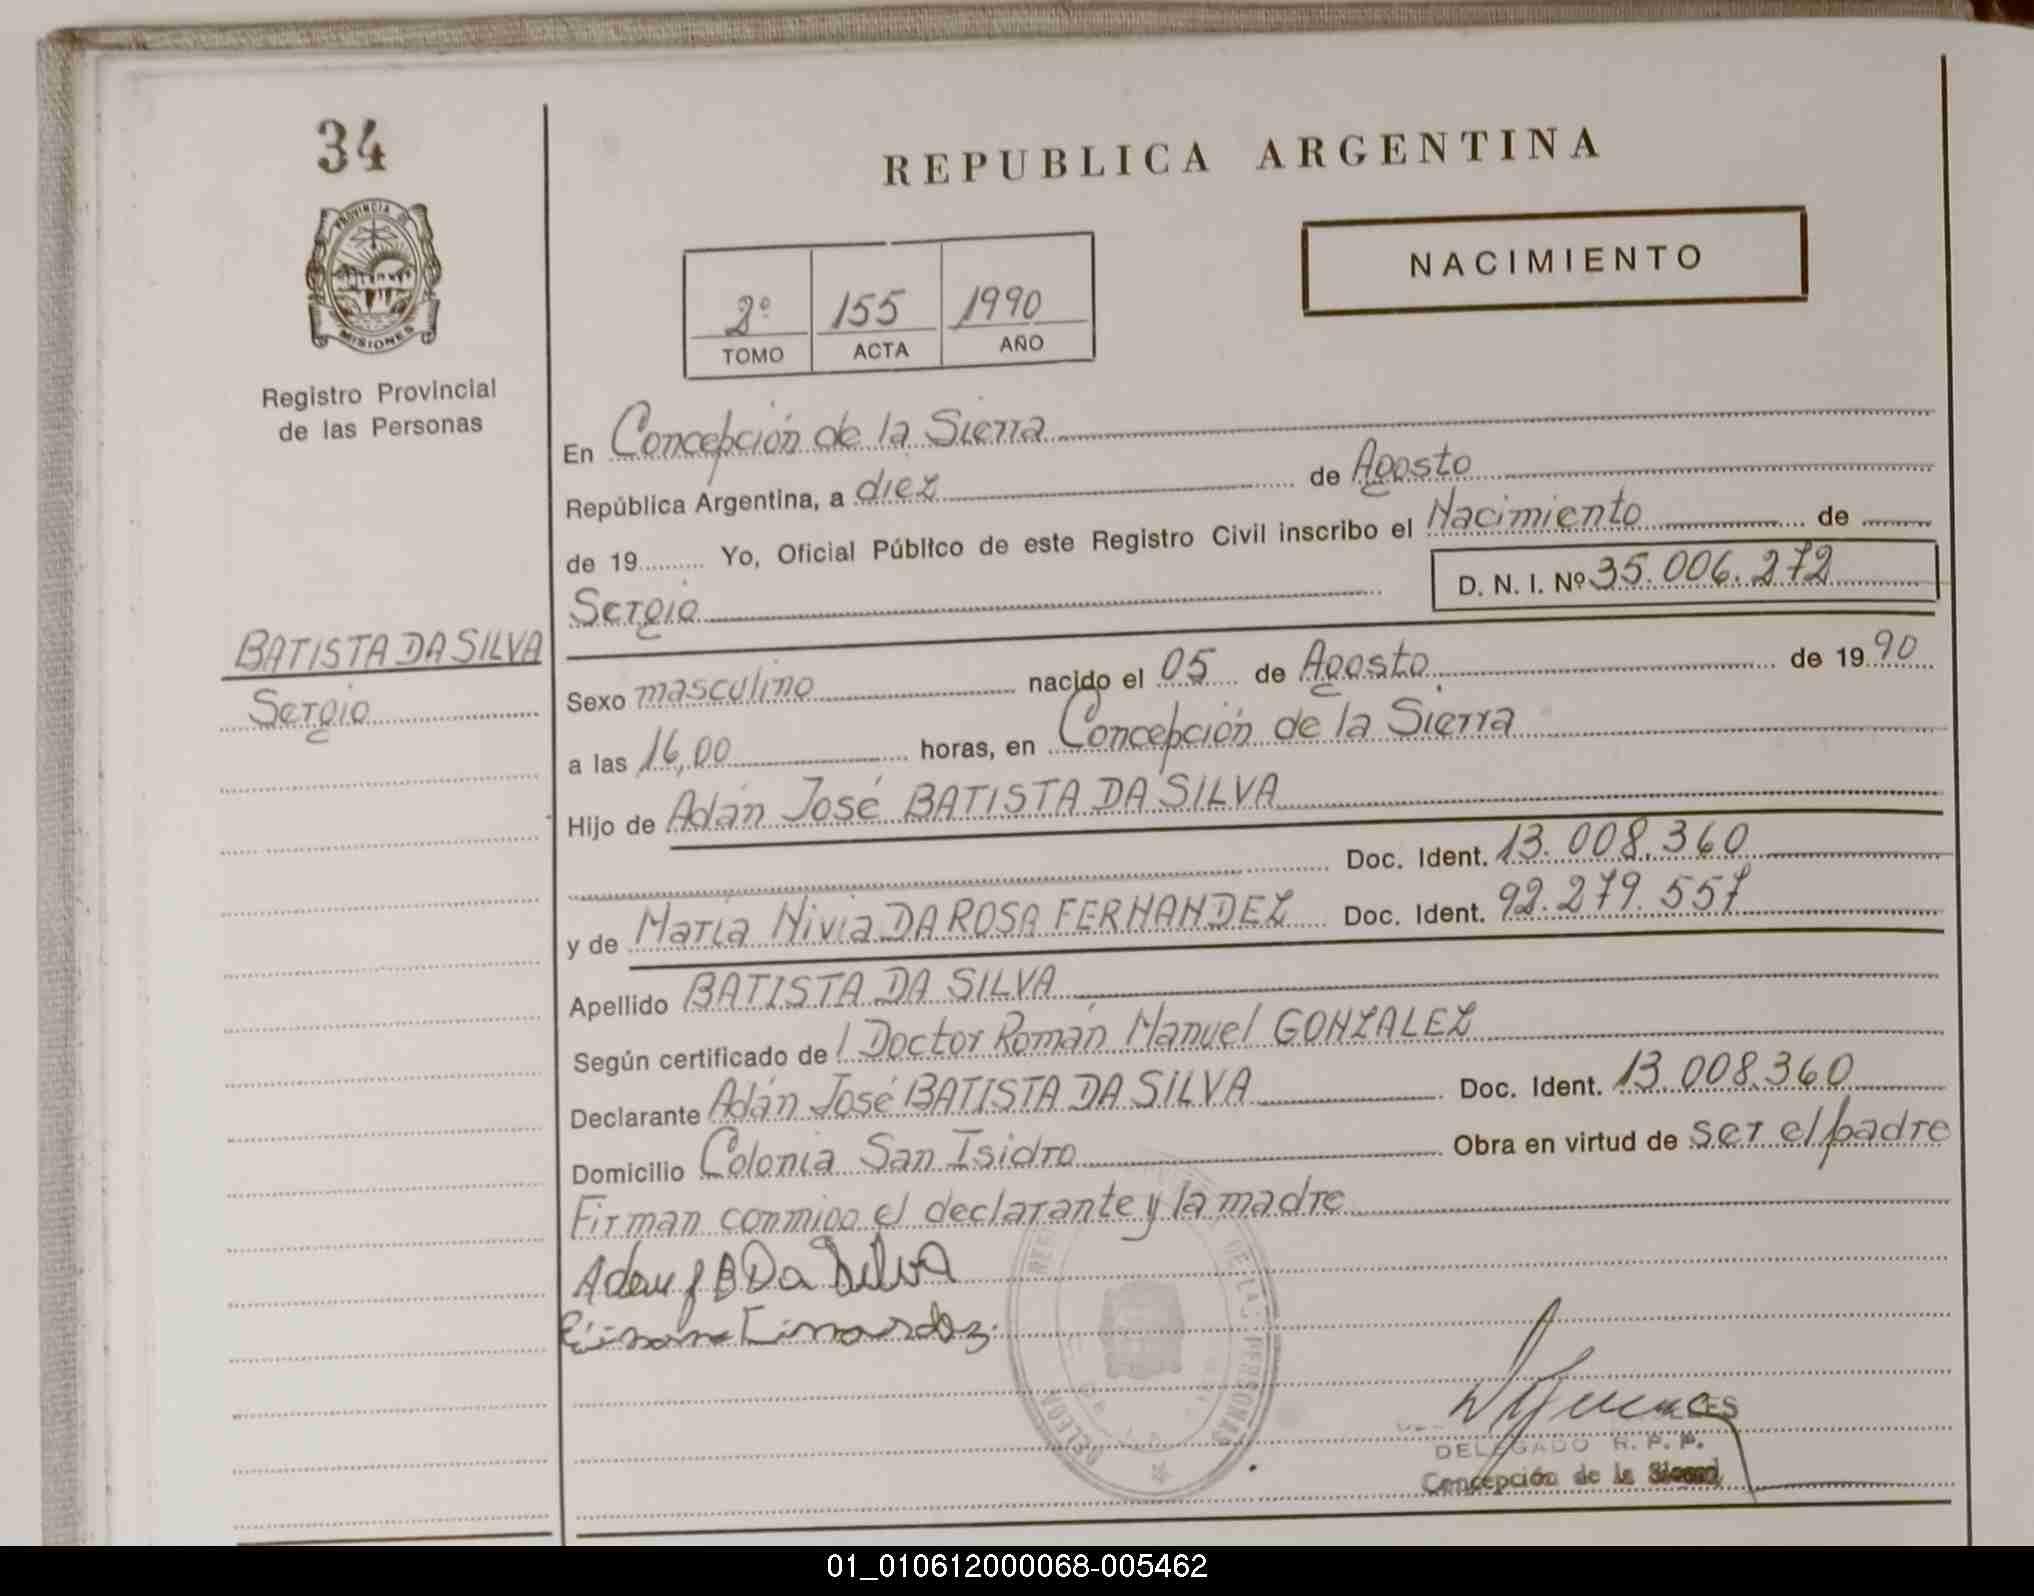 34
PROVINCIA DE
MISIONES
Registro Provincial
de las Personas
BATISTA DA SILVA
Sergio
REPUBLICA ARGENTINA
NACIMIENTO
2º 155 1990
TOMO ACTA AÑO
En Concepción de la Sierra
República Argentina, a diez de Agosto
de 19 Yo, Oficial Público de este Registro Civil inscribo el Nacimiento de
Sergio D. N. I. Nº 35.006.272
Sexo masculino nacido el 05 de Agosto de 1990
a las 16,00 horas, en Concepción de la Sierra
Hijo de Adán José BATISTA DA SILVA
Doc. Ident. 13.008.360
y de María Nivia DA ROSA FERNANDEZ Doc. Ident. 92.279.557
Apellido BATISTA DA SILVA
Según certificado de l Doctor Román Manuel GONZALEZ
Declarante Adán José BATISTA DA SILVA Doc. Ident. 13.008.360
Domicilio Colonia San Isidro Obra en virtud de ser el padre
Firman conmigo el declarante y la madre
Adan J B Da Silva
DE LAS PERSONAS
DELEGADO R. P. P.
Concepción de la Sierra
01_010612000068-005462